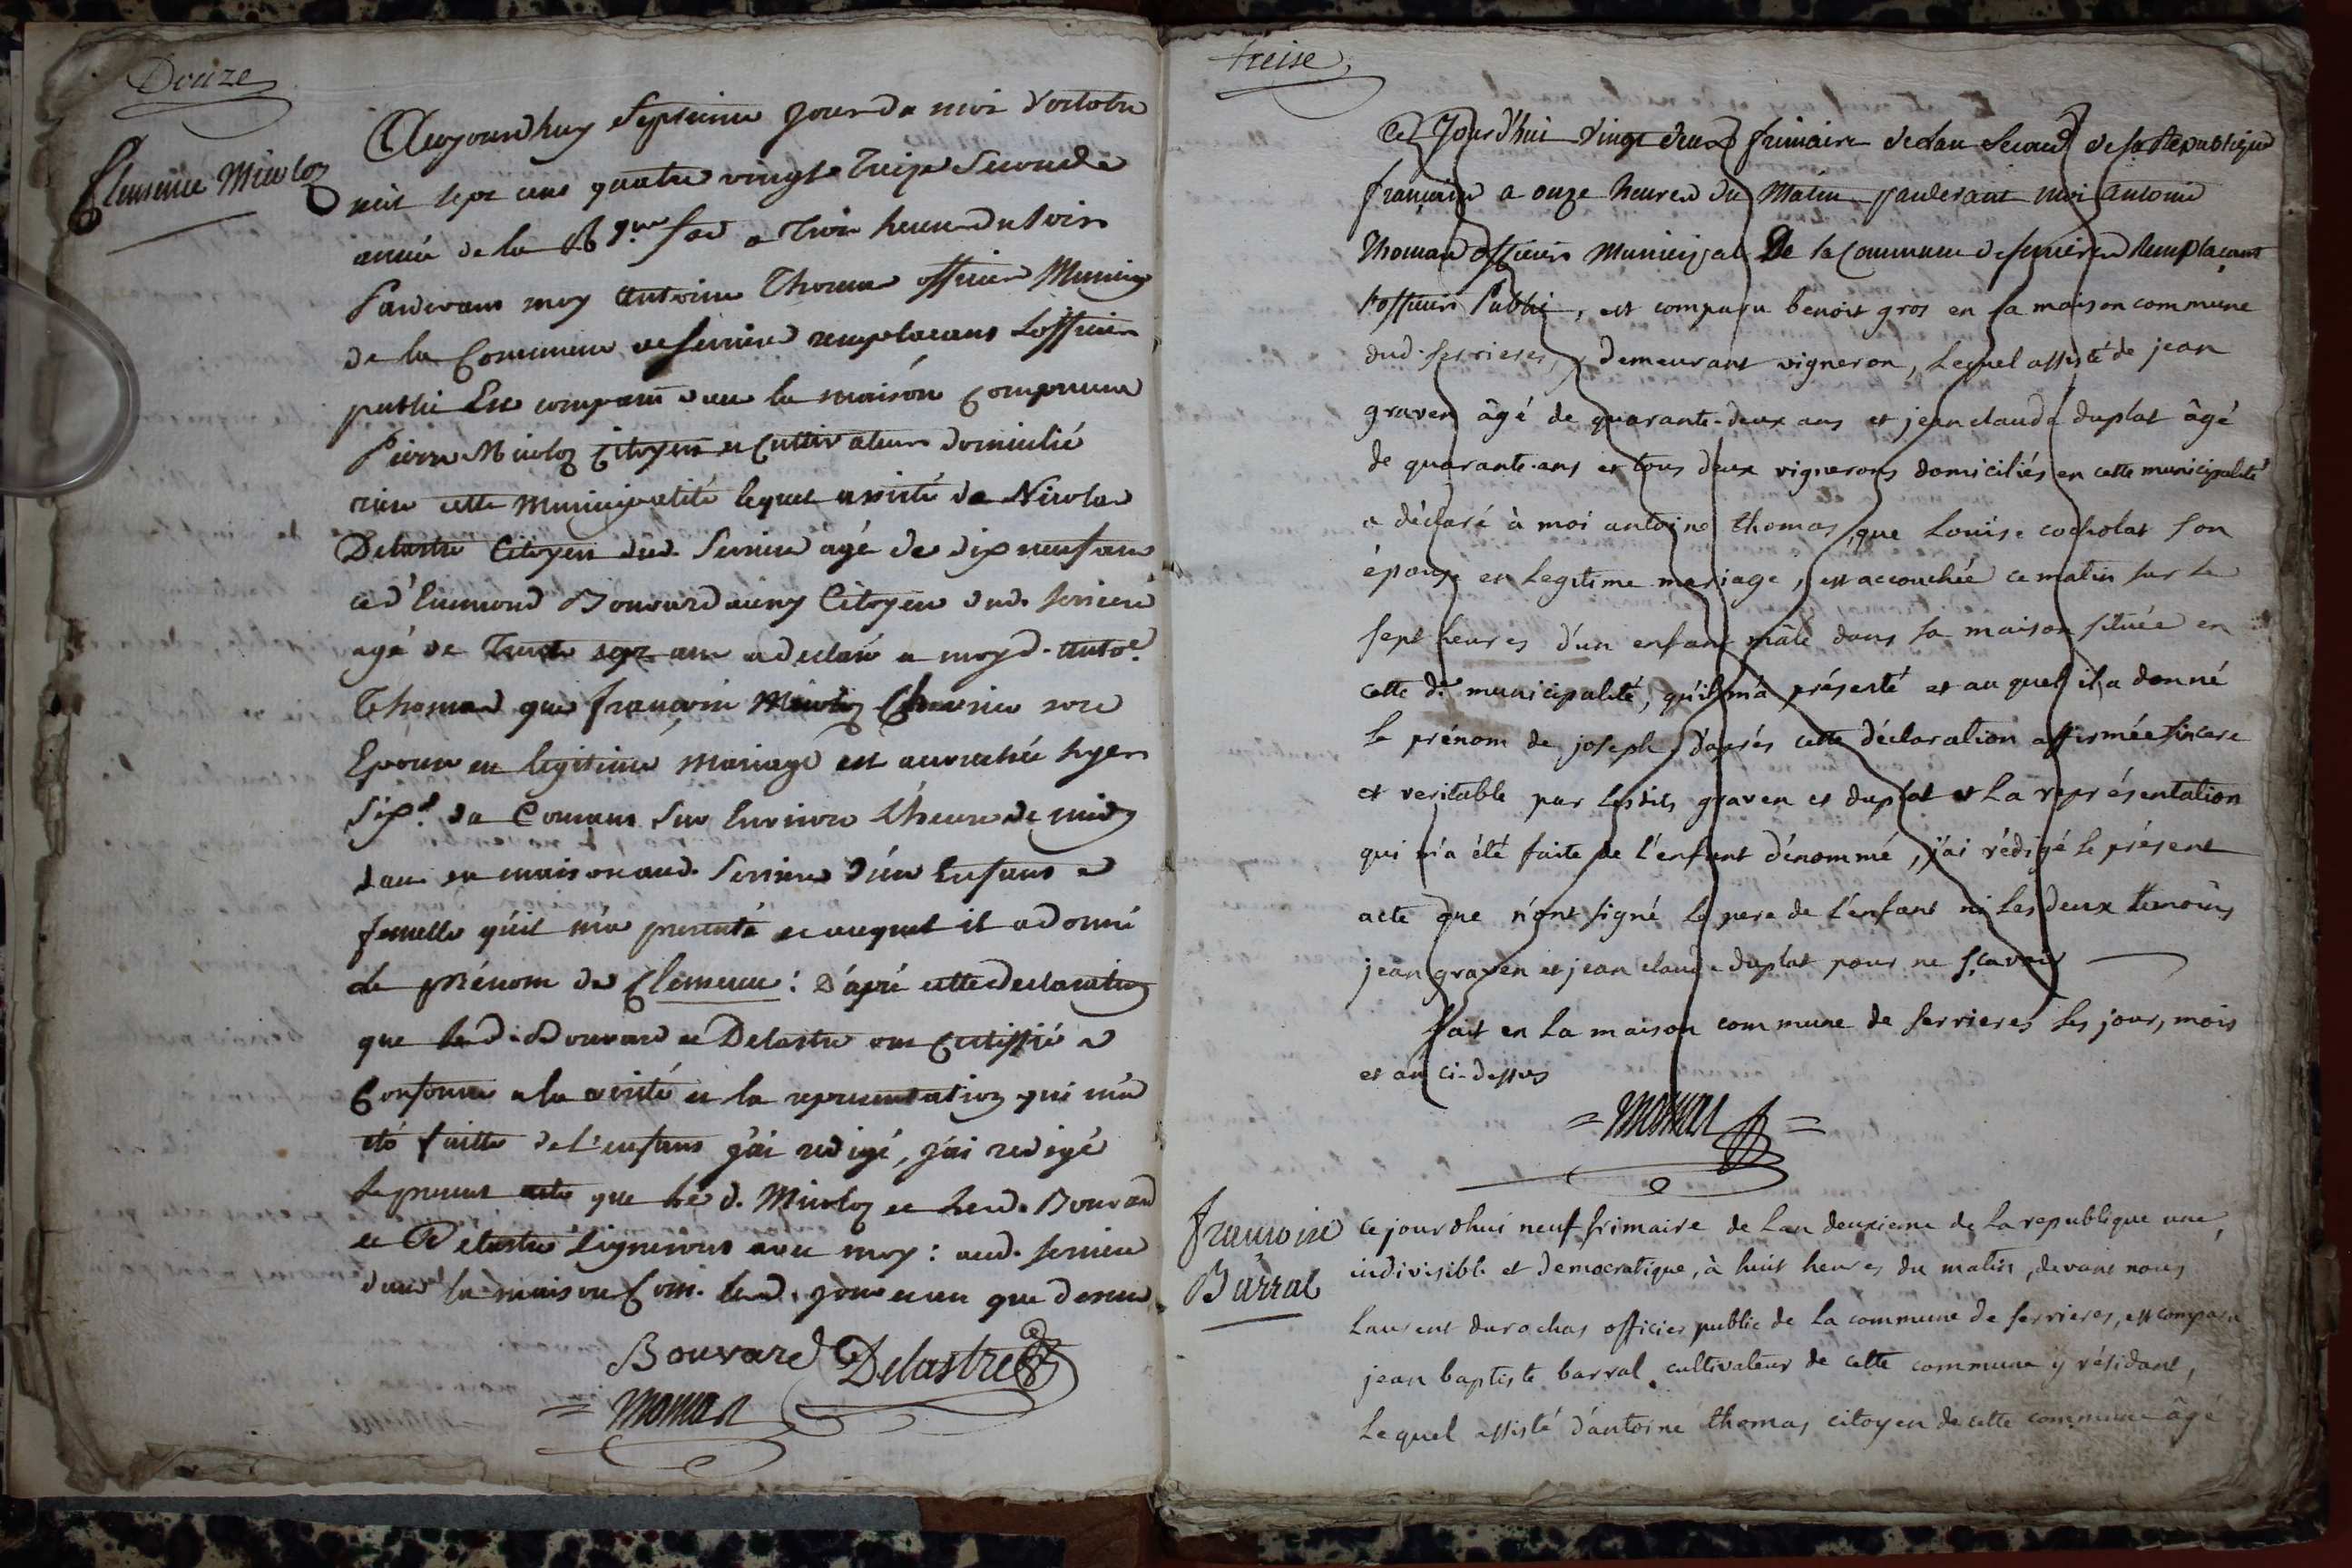 Douze
Clemence Miculoz
Aujourdhuy Septieme jour du mois d'octobre
mil sept cens quatre vingt Treize Seconde
année de la Rque fse a Trois heure du soir
Pardevans moy Antoine Thomas officier Municip
de la Commune de serrieres remplacans L'officier
public Est comparu dans la maison Commune
Pierre Miculoz Citoyen et Cultivateur domicilié
cette Municipalité lequel assisté de Nicolas
Delastre Citoyen dud. Serrieres agé de dix neuf ans
et d'Einmond Bouvard Citoyen dud. serrieres
agé de Trente sept ans a declaré a moy d. Antoe
Thomas que françoise Miculoz son
Epouse en legitime Mariage est accouchée hyer
Six du Courans sur Environ L'heure de midy
dans sa maison aud. Serrieres d'un Enfans
femelle qu'il m'a presenté et auquel il a donné
le prénom de Clemence : D'apré cette declaration
que led. Bouvard et Delastre ons Certiffié
Conforme a la verité et la representation qui m'a
eté faitte de L'enfans j'ai redigé, j'ai redigé
le present acte que le d. Miculoz et led. Bouvard
et Delastre Signerons avec moy : aud. serriere
dans la maison Com. led. jour et an que dessus
Bouvard Delastre
= Thomas
treise
Ce Jourd'hui vingt deux frimaire de L'an Second de la Republique
française a onze heures du Matin pardevant moi Antoine
Thomas officier Municipal De la Commune de serrieres Remplaçant
l'officier Public, est comparu benoit gros en la maison commune
dud. serrieres, y demeurant vigneron, Lequel assisté de jean
graven âgé de quarante-deux ans et jean claude duplat âgé
de quarante-ans et tous deux vignerons domiciliés en cette municipalité
a déclaré à moi antoine thomas, que Louise cocholat son
épouse en Legitime mariage, est accouchée ce matin sur Le
sept heures d'un enfant mâle dans sa maison située en
cette de municipalité, qu'il m'a présenté et au quel il a donné
le prénom de joseph, d'aprés cette déclaration affirmée sincere
et veritable par lesdits graven et duplat et La représentation
qui m'a été faite de l'enfant dénommé, j'ai rédigé le présent
acte que n'ont signé le pere de l'enfant ni Les deux témoins
jean graven et jean claude duplat pour ne sçavoir
fait en La maison commune de serrieres les jour, mois
et an ci-dessus
= Thomas =
francoise
Barral
ce jourdhui neuf frimaire de Lan deuxieme de La republique une,
indivisible et democratique, à huit heures du matin, devant nous
Laurent durochas officier public de La commune de serrieres, est comparu
jean baptiste barral cultivateur de cette commune y résidant,
Lequel assisté d'antoine thomas citoyen de cette commune âgé